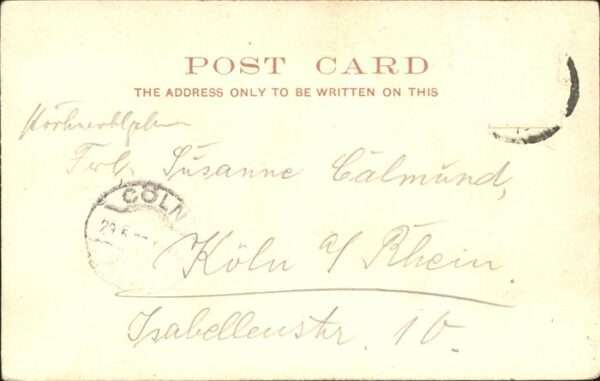 POST CARD
THE ADDRESS ONLY TO BE WRITTEN ON THIS
Frl. Susanne Calmund,
CÖLN
Köln a/ Rhein.
Isabellenstr. 10.